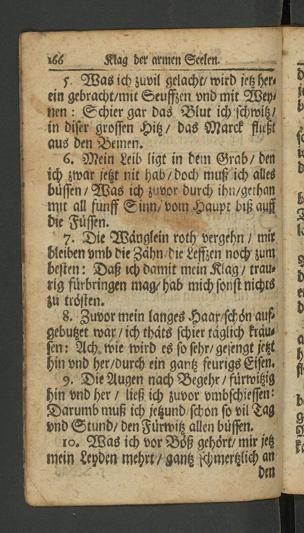 166 Klag der armen Seelen.
5. Was ich zuvil gelacht/ wird jetz her-
ein gebracht/ mit Seuffzen vnd mit Wey-
nen: Schier gar das Blut ich schwitz/
in diser grossen Hitz/ das Marck fließt
aus den Beinen.
6. Mein Leib ligt in dem Grab/ den
ich zwar jetzt nit hab/ doch muß ich alles
büssen/ Was ich zuvor durch ihn/ gethan
mit all fünff Sinn/ vom Haupt biß auff
die Füssen.
7. Die Wänglein roth vergehn/ mir
bleiben vmb die Zähn/ die Leffzen noch zum
besten: Daß ich damit mein Klag/ trau-
rig fürbringen mag/ hab mich sonst nichts
zu trösten.
8. Zuvor mein langes Haar/ schön auf-
gebutzet war/ ich thäts schier täglich krau-
sen: Ach wie wird es so sehr/ gesengt jetzt
hin vnd her/ durch ein gantz feurigs Eisen.
9. Die Augen nach Begehr/ fürwitzig
hin vnd her/ ließ ich zuvor vmbschiessen:
Darumb muß ich jetzund schon so vil Tag
vnd Stund/ den Fürwitz allen büssen.
10. Was ich vor Böß gehört/ mir jetz
mein Leyden mehrt/ gantz schmertzlich an
den